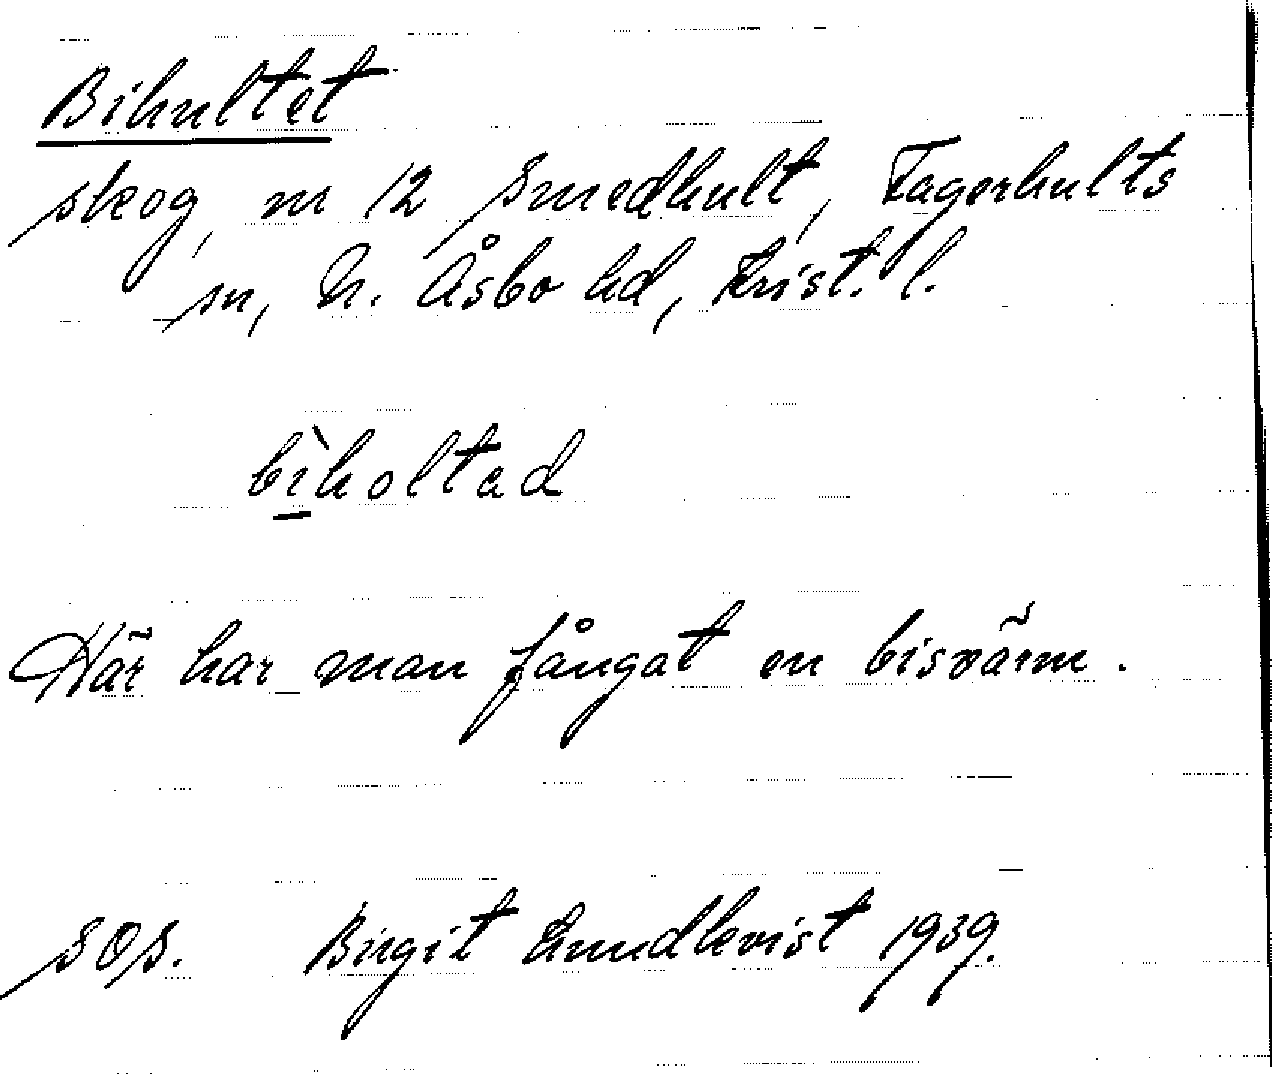 Bihultet
skog, nr 12 Smedhult, Fagerhults
sn, N. Åsbo hd, Krist. l.
bìholtad
Här har man fångat en bisvärm.
SOS. Birgit 1939.